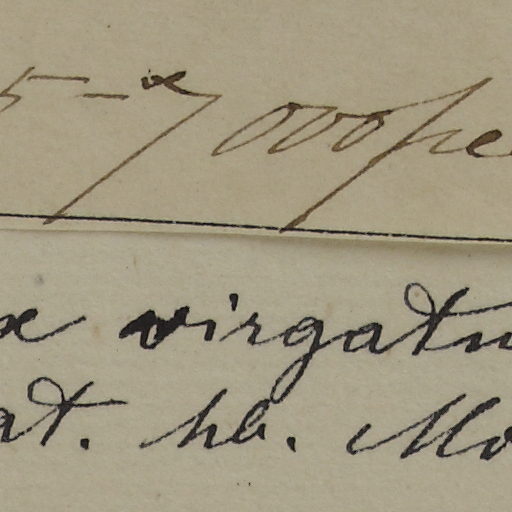 5-7000 pe
x virgatu
at. hb. Mo